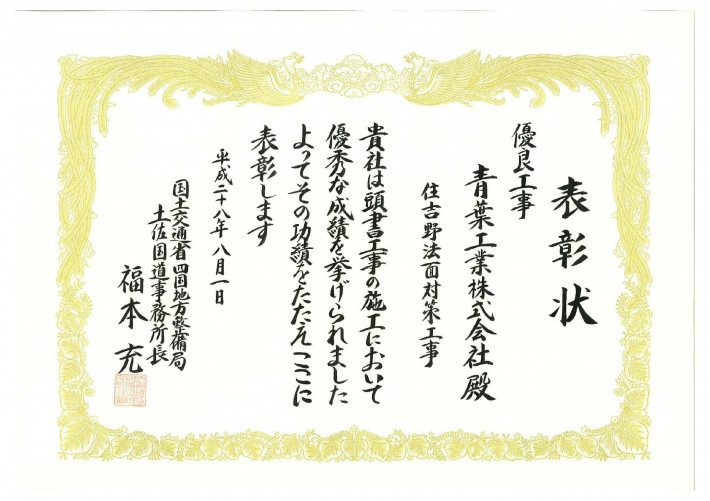 表彰状
優良工事
青葉工業株式会社殿
住吉野法面対策工事
貴社は頭書工事の施工において
優秀な成績を挙げられました
よってその功績をたたえここに
表彰します
平成二十八年八月一日
国土交通省四国地方整備局
土佐国道事務所長
福本充